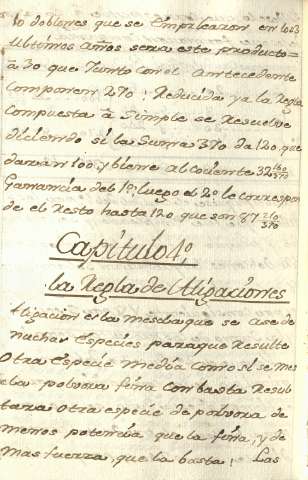 10 doblones que se Emplearon en los 3
Ultimos años sera este producto =
a 30 que Junto con el Antecedente
componen 270 : Reducida ya la Regla
compuesta â Simple se Resuelve
diciendo si la Suma 370 da 120 que
daran 100 y biene al cociente 32 160/370
Ganancia del 1º luego el 2º le correspon
de el Resto hasta 120 que son 87 210/370
Capitulo 4º
la Regla de Aligaciones
Aligacion es la mescla que se ace de
muchas Especies para que Resulte
Otra Especie media como si se mes
cla polvora fina con basta Resul
tara otra especie de polvora de
menos potencia que la fina, y de
mas fuerza, que la basta : Las